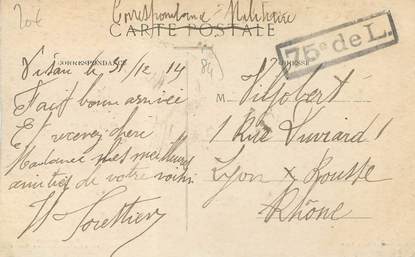 20€
Correspondance Militaire
CARTE POSTALE
75e de L.
CORRESPONDANCE
Visan le 31/12/14
84
Fait bonne arrivée
Et recevez chère
Madame mes meilleures
amitiés de votre voisin
M
1 Rue 1
Lyon x Rousse
Rhône